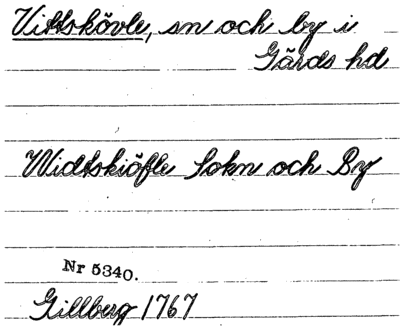 Vittskövle, sn och by i
Gärds hd
Widtskiöfle Sokn och By
Nr 5340.
Gillberg 1767